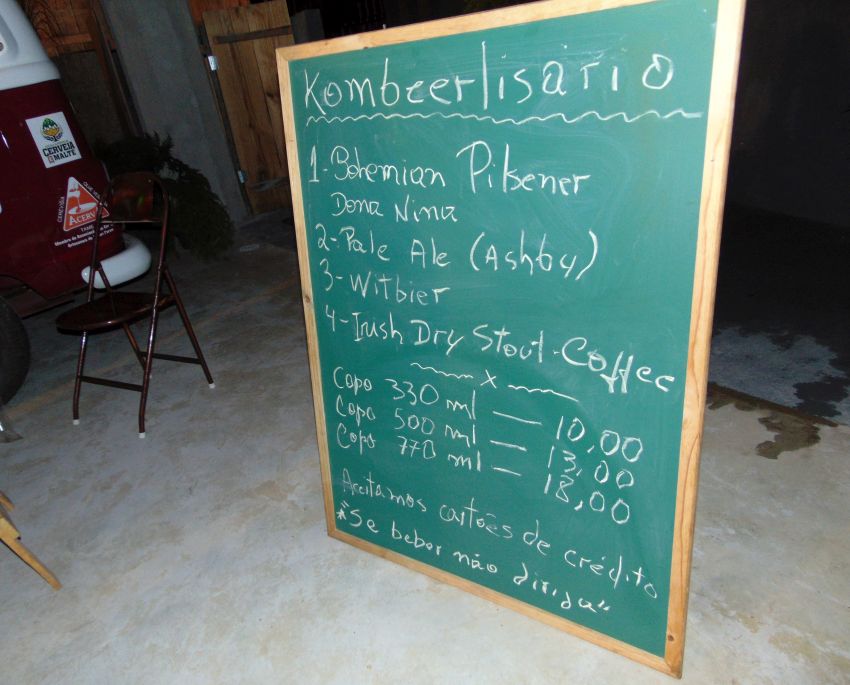 Kombeerlisário
1- Bohemian Pilsener
Dona Nina
2- Pale Ale (Ashby)
3- Witbier
4- Irish Dry Stout - Coffee
x
Copo 330 ml — 10,00
Copo 500 ml — 13,00
Copo 770 ml — 18,00
Aceitamos cartões de crédito
*"Se beber não dirija"
CERVEJA
MALTE
ACERVA